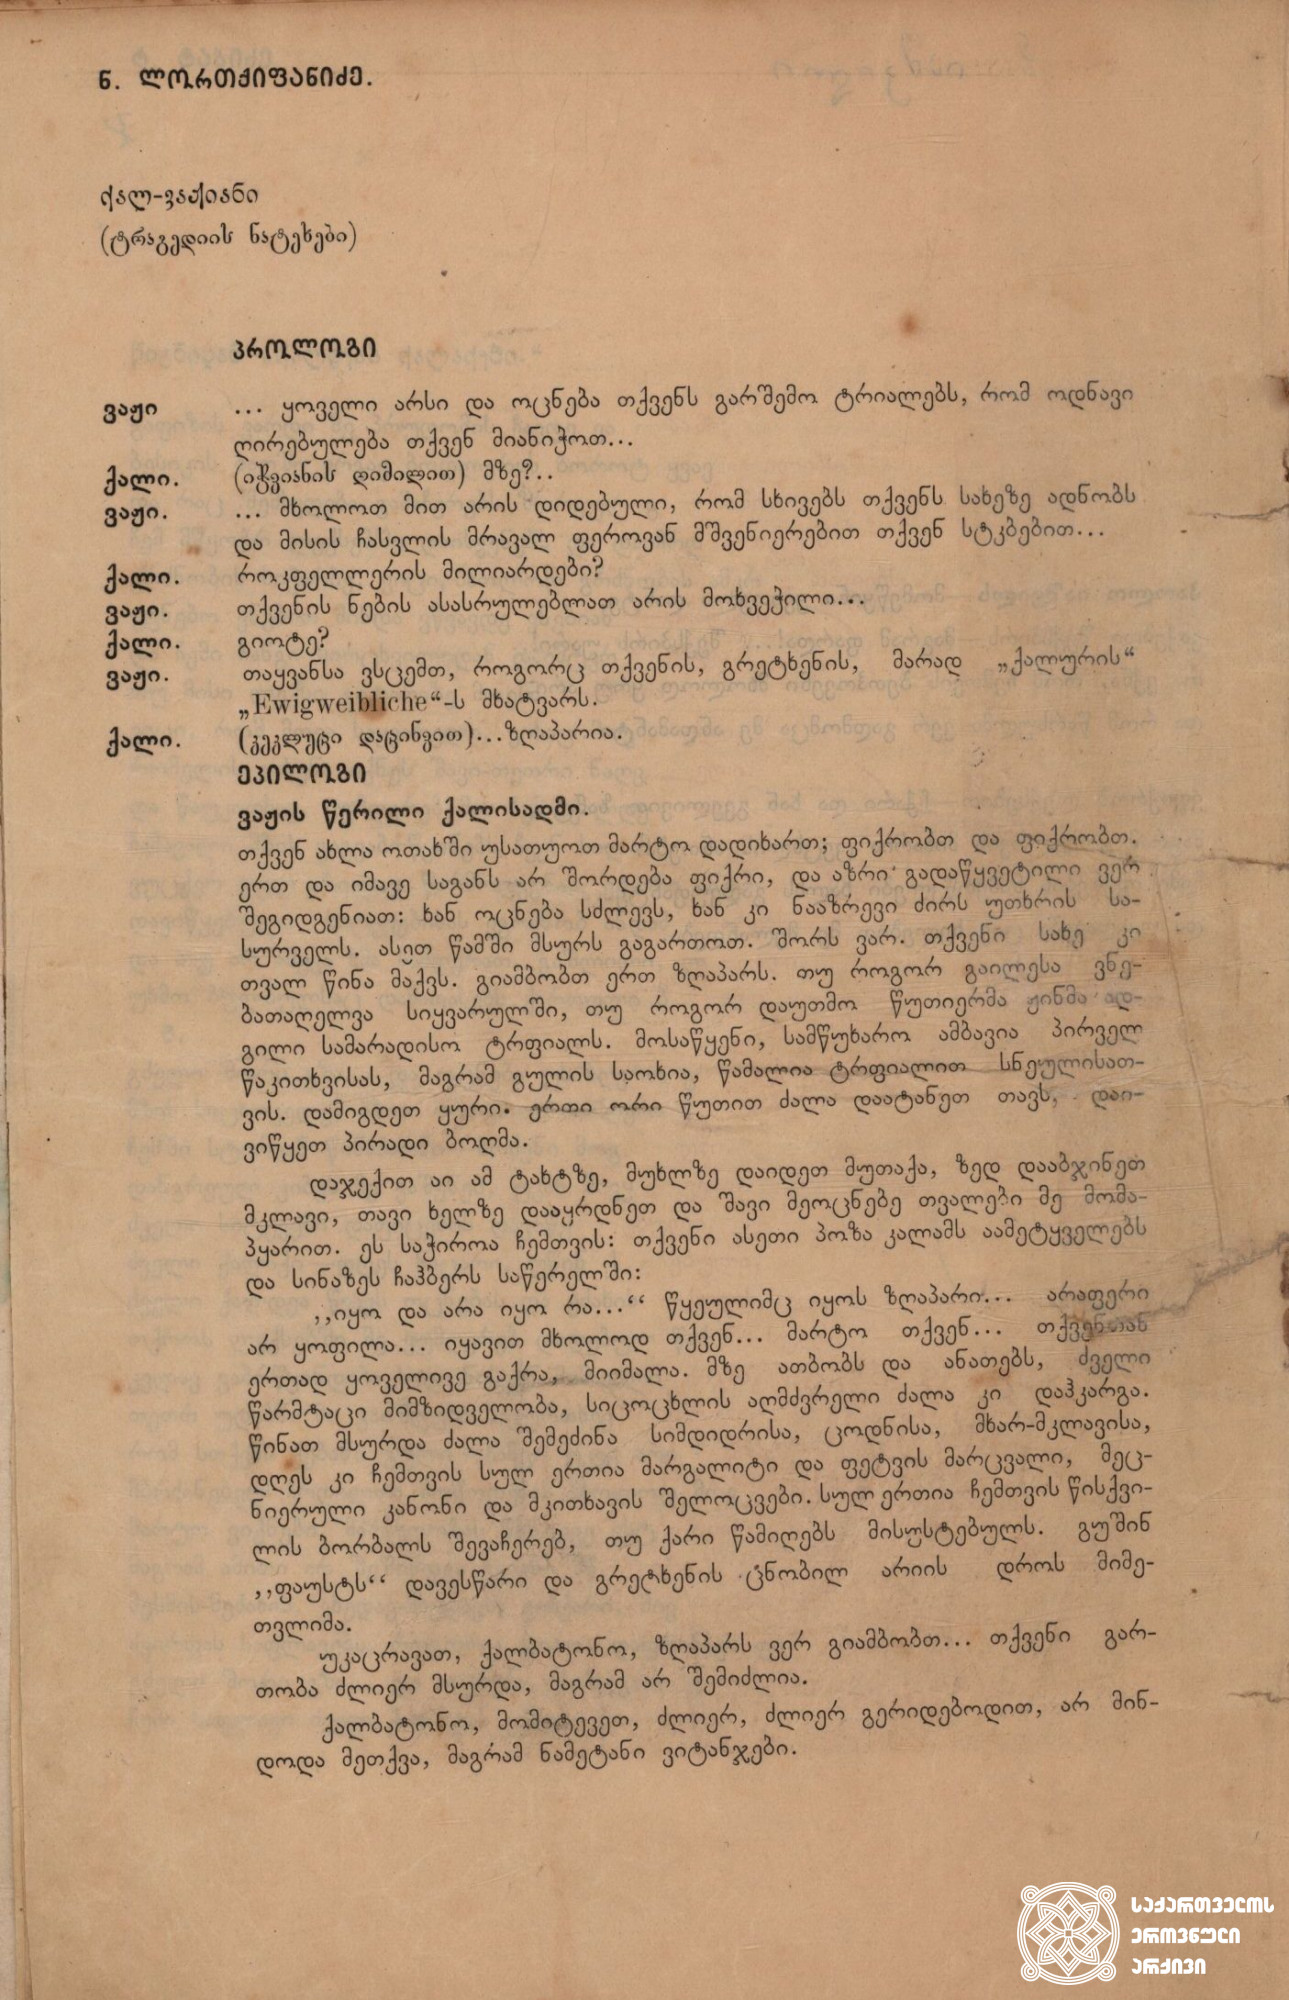 ნ. ლორთქიფანიძე.
ქალ-ვაჟიანი
(ტრაგედიის ნატეხები)
პროლოგი
ვაჟი ... ყოველი არსი და ოცნება თქვენს გარშემო ტრიალებს, რომ ოდნავი
ღირებულება თქვენ მიანიჭოთ...
ქალი. (იჭვიანის ღიმილით) მზე?..
ვაჟი. ... მხოლოთ მით არის დიდებული, რომ სხივებს თქვენს სახეზე ადნობს
და მისის ჩასვლის მრავალ ფეროვან მშვენიერებით თქვენ სტკბებით...
ქალი. როკფელლერის მილიარდები?
ვაჟი. თქვენის ნების ასასრულებლათ არის მოხვეჭილი...
ქალი. გიოტე?
ვაჟი. თაყვანსა ვსცემთ, როგორც თქვენის, გრეტხენის, მარად „ქალურის“
„Ewigweibliche“-ს მხატვარს.
ქალი. (კეკლუცი დაცინვით)...ზღაპარია.
ეპილოგი
ვაჟის წერილი ქალისადმი.
თქვენ ახლა ოთახში უსათუოთ მარტო დადიხართ; ფიქრობთ და ფიქრობთ.
ერთ და იმავე საგანს არ შორდება ფიქრი, და აზრი გადაწყვეტილი ვერ
შეგიდგენიათ: ხან ოცნება სძლევს, ხან კი ნააზრევი ძირს უთხრის სა-
სურველს. ასეთ წამში მსურს გაგართოთ. შორს ვარ. თქვენი სახე კი
თვალ წინა მაქვს. გიამბობთ ერთ ზღაპარს. თუ როგორ გაილესა ვნე-
ბათაღელვა სიყვარულში, თუ როგორ დაუთმო წუთიერმა ჟინმა ად-
გილი სამარადისო ტრფიალს. მოსაწყენი, სამწუხარო ამბავია პირველ
წაკითხვისას, მაგრამ გულის საოხია, წამალია ტრფიალით სნეულისათ-
ვის. დამიგდეთ ყური. ერთი ორი წუთით ძალა დაატანეთ თავს, დაი-
ვიწყეთ პირადი ბოღმა.
დაჯექით აი ამ ტახტზე, მუხლზე დაიდეთ მუთაქა, ზედ დააბჯინეთ
მკლავი, თავი ხელზე დააყრდნეთ და შავი მეოცნებე თვალები მე მომა-
პყარით. ეს საჭიროა ჩემთვის: თქვენი ასეთი პოზა კალამს აამეტყველებს
და სინაზეს ჩაჰბერს საწერელში:
,,იყო და არა იყო რა...‘‘ წყეულიმც იყოს ზღაპარი... არაფერი
არ ყოფილა... იყავით მხოლოდ თქვენ... მარტო თქვენ... თქვენთან
ერთად ყოველივე გაქრა, მიიმალა. მზე ათბობს და ანათებს, ძველი
წარმტაცი მიმზიდველობა, სიცოცხლის აღმძვრელი ძალა კი დაჰკარგა.
წინათ მსურდა ძალა შემეძინა სიმდიდრისა, ცოდნისა, მხარ-მკლავისა,
დღეს კი ჩემთვის სულ ერთია მარგალიტი და ფეტვის მარცვალი, მეც-
ნიერული კანონი და მკითხავის შელოცვები. სულ ერთია ჩემთვის წისქვი-
ლის ბორბალს შევაჩერებ, თუ ქარი წამიღებს მისუსტებულს. გუშინ
,,ფაუსტს‘‘ დავესწარი და გრეტხენის ცნობილ არიის დროს მიმე-
თვლიმა.
უკაცრავათ, ქალბატონო, ზღაპარს ვერ გიამბობთ... თქვენი გარ-
თობა ძლიერ მსურდა, მაგრამ არ შემიძლია.
ქალბატონო, მომიტევეთ, ძლიერ, ძლიერ გერიდებოდით, არ მინ-
დოდა მეთქვა, მაგრამ ნამეტანი ვიტანჯები.
საქართველოს
ეროვნული
არქივი